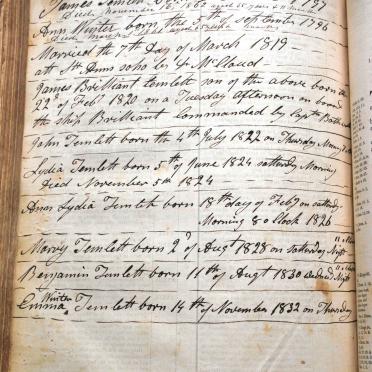 James Temlett
Died November 1860 aged
Ann Winter born the 5th September 1796
Died
Married the 7th Day of March 1819
at St Anns soho by Mr McCloud
James Brilliant Temlett son of the above born
22d of Feby 1820 on a Tuesday afternoon on board
the ship Brilliant commanded by Captn
John Temlett born the 4th July 1822 on Thursday
Lydia Temlett born 5th of June 1824 satterday Morning
Died November 5th 1824
Ann Lydia Temlett born 18th day of Feby on satterday
Morning 8 o Clock 1826
Marry Temlett born 2d Augt 1828 on satterday Night
Benjamin Temlett born 11th of Augt 1830 Night
Winter
Emma Temlett born 14th of November 1832 on Thursday